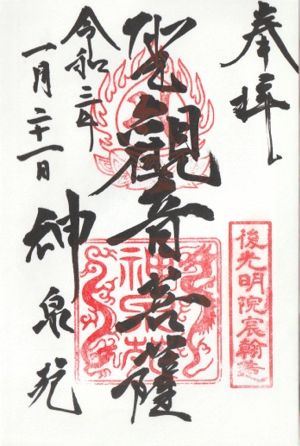 奉拝
後光明院宸翰
聖観音菩薩
神泉苑
令和三年
一月二十一日
神泉苑